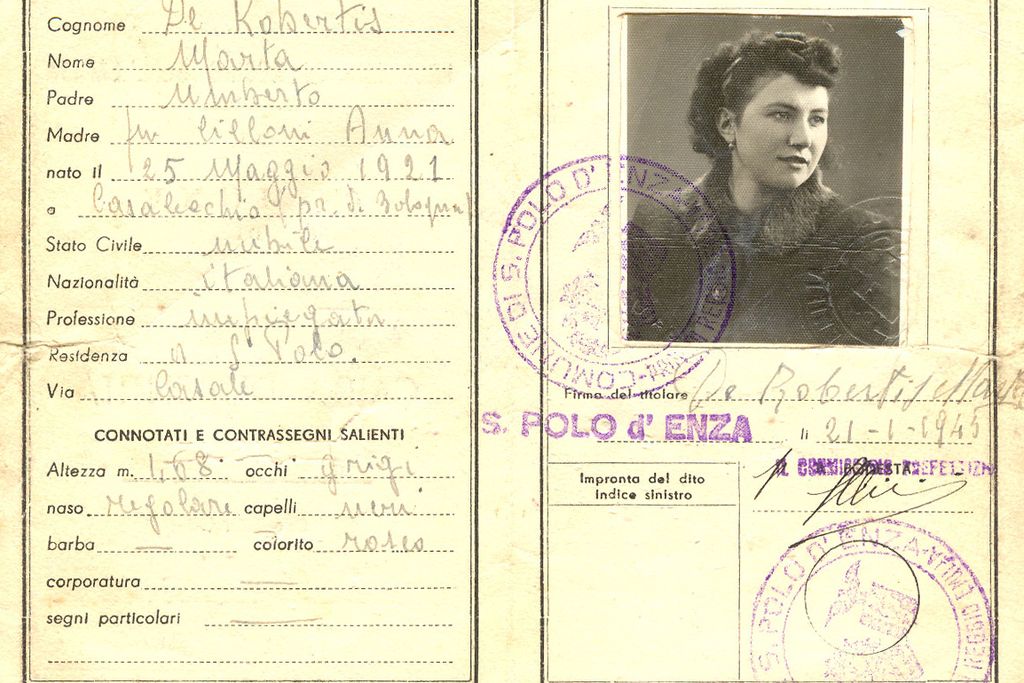 Cognome De Robertis
Nome Marta
Padre Umberto
Madre fu Cilloni Anna
nato il 25 Maggio 1921
a Casalecchio (pr. di Bologna)
Stato Civile nubile
Nazionalità italiana
Professione impiegata
Residenza a S. Polo.
Via Casale
CONNOTATI E CONTRASSEGNI SALIENTI
Altezza m. 1,68 occhi grigi
naso regolare capelli neri
barba — colorito roseo
corporatura —
segni particolari —
COMUNE DI S. POLO D' ENZA
Firma del titolare De Robertis Marta
S. POLO d' ENZA li 21-1-1945
Impronta del dito
indice sinistro
p. IL COMMISSARIO PREFETTIZIO
PODESTÀ
S. POLO D' ENZA